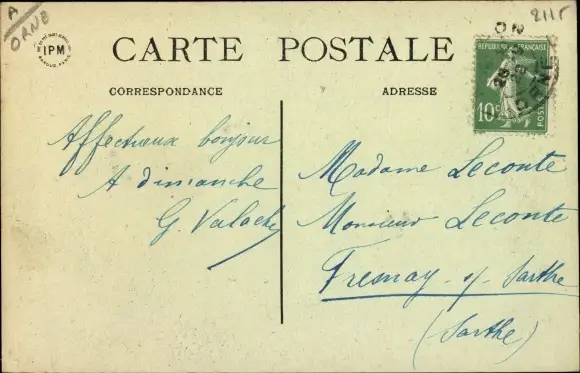 A
ORNE
2115
IPM
CARTE POSTALE
CORRESPONDANCE
ADRESSE
RÉPUBLIQUE FRANÇAISE
10c
POSTES
Affectueux bonjour
A dimanche
G. Valache
Madame Leconte
Monsieur Leconte
Fresnay s/ Sarthe
(Sarthe)